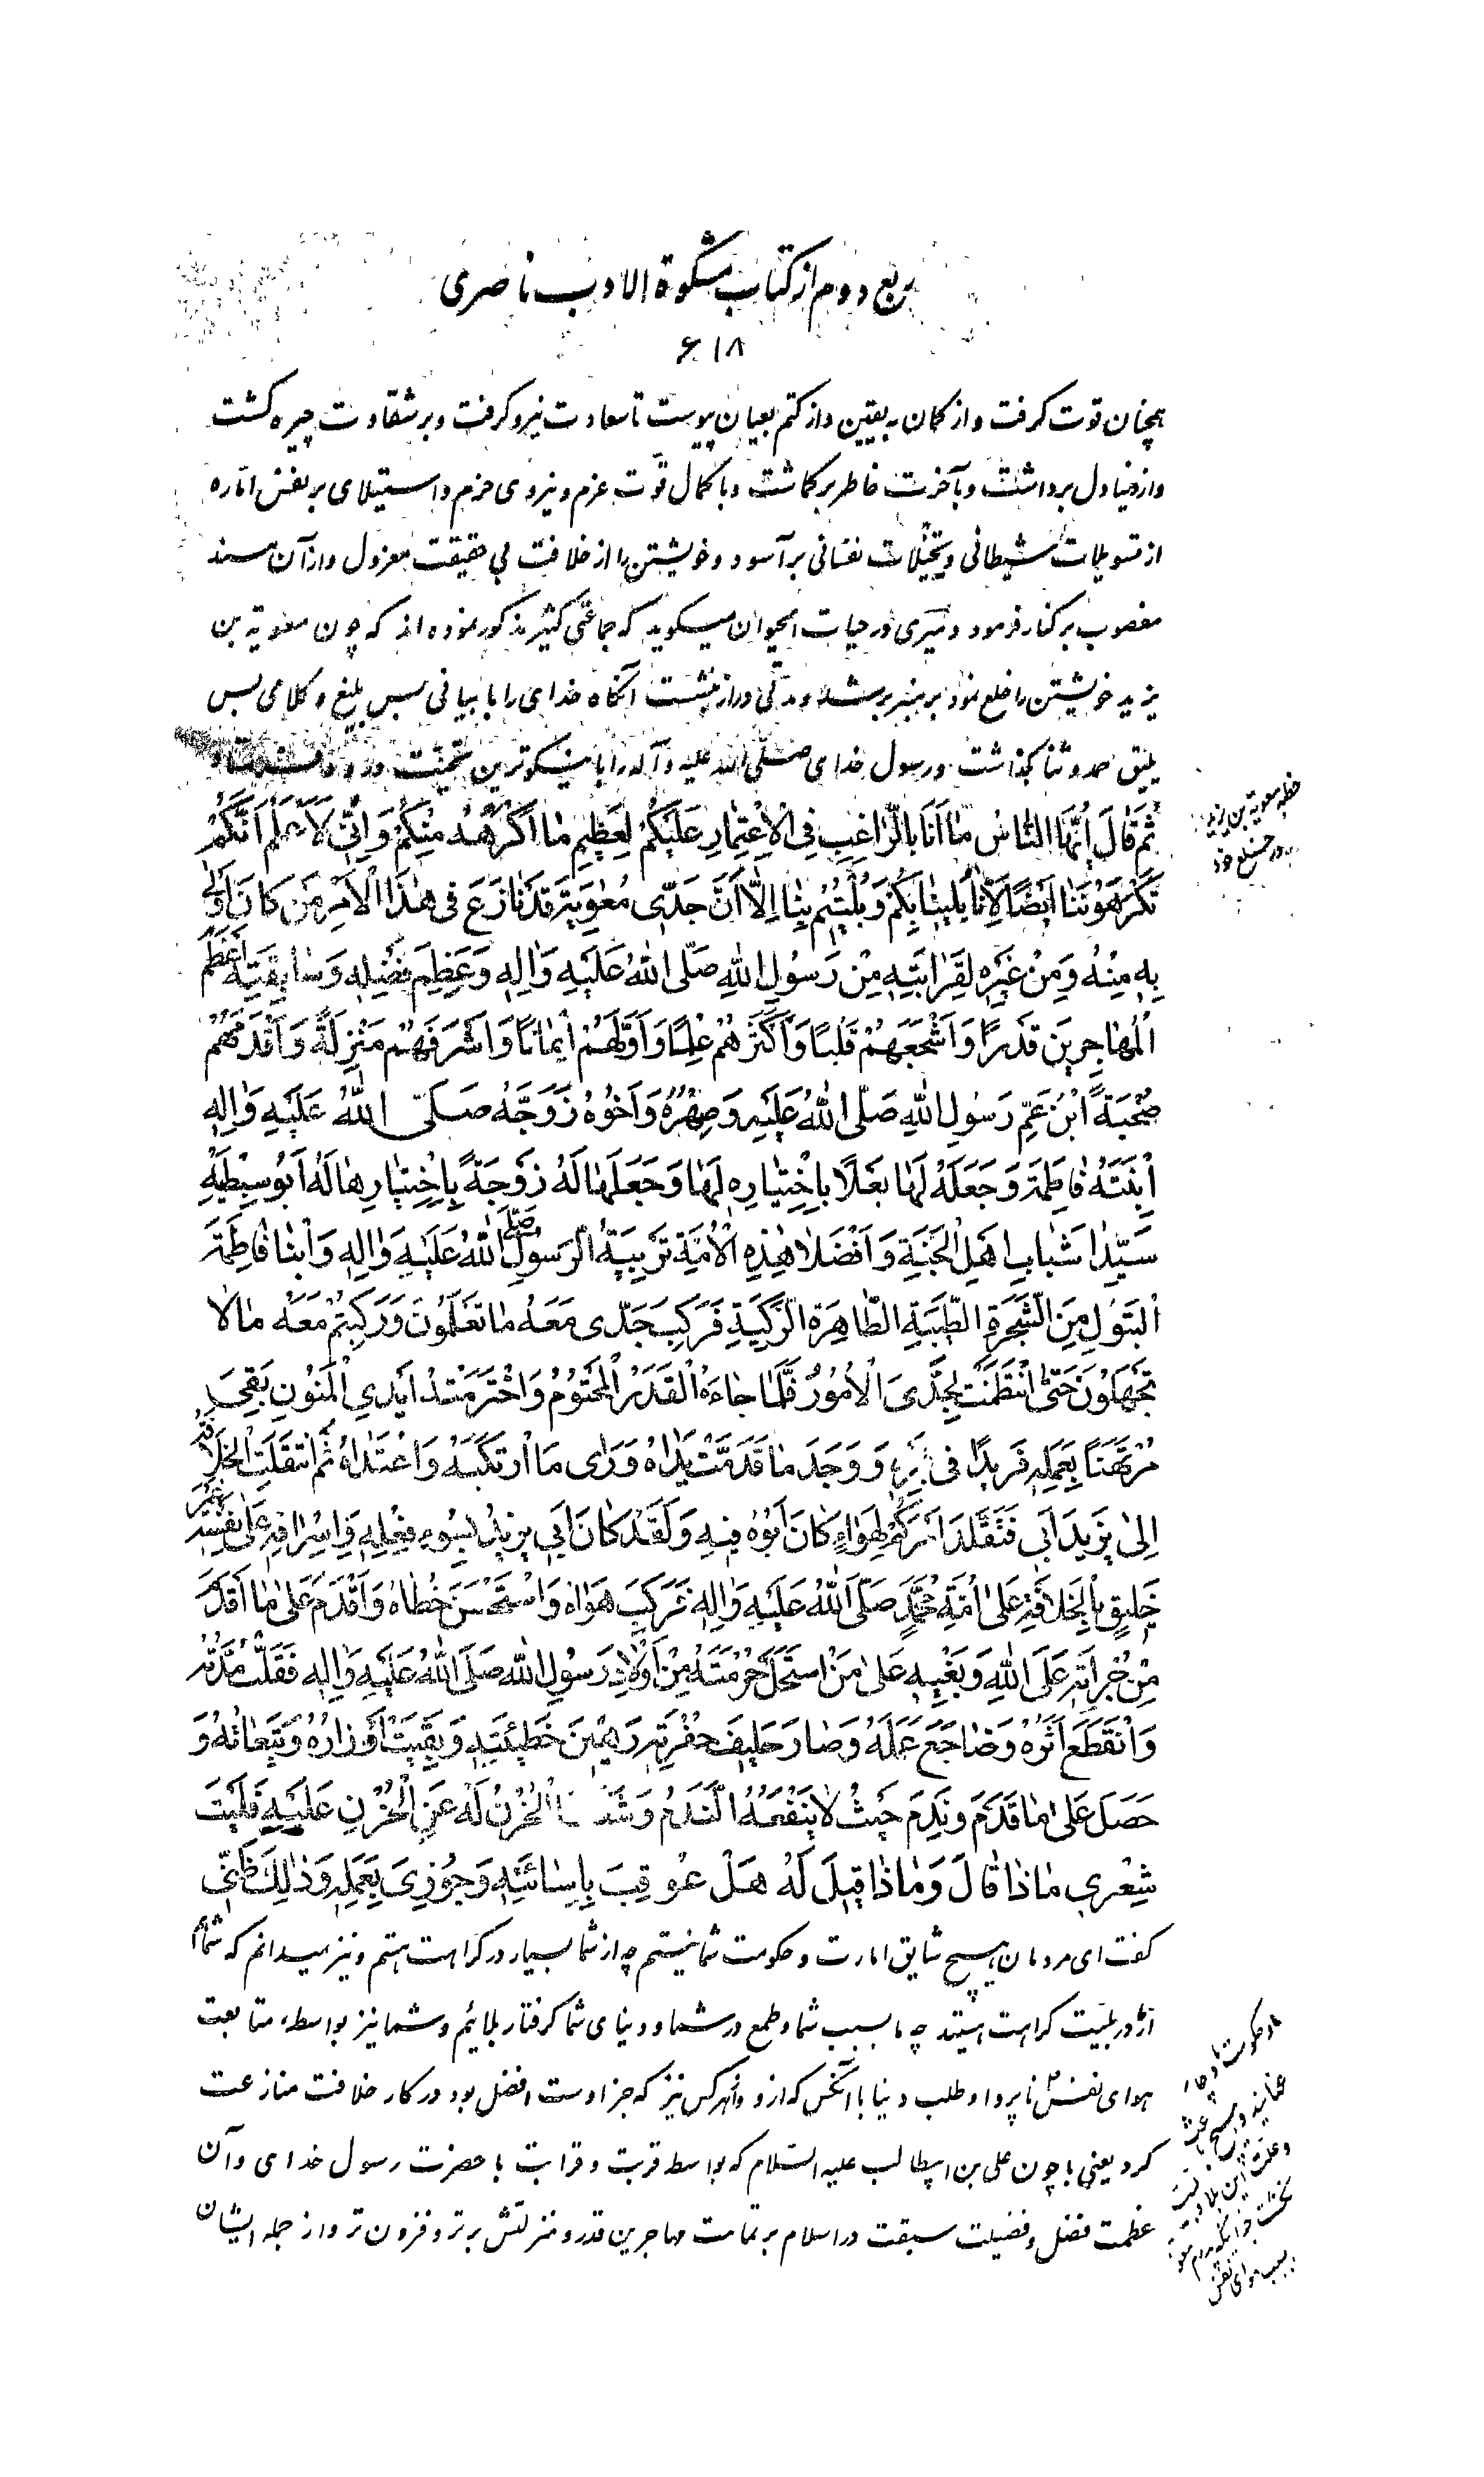 ربع دوم از کتاب مشکوة الادب ناصری
۶۱۸
همچنان قوت گرفت و از گمان به یقین و از کتم بعیان پیوست تا سعادت نیرو گرفت و بر شقاوت چیره گشت
و از دنیا دل برداشت و بآخرت خاطر برگماشت و با کمال قوّت عزم و نیروی حزم و استیلای بر نفس امّاره
از تسویلات شیطانی و تخیّلات نفسانی برآسود و خویشتن را از خلافت بی حقیقت معزول و از آن مسند
مغصوب برکنار فرمود و دمیری در حیات الحیوان میگوید که جماعتی کثیر مذکور نموده اند که چون معویة بن
یزید خویشتن را خلع نمود بر منبر بر شد و مدتی دراز بنشست آنگاه خدای را با بیانی بس بلیغ و کلامی بس
بلیق حمد و ثنا گذاشت و رسول خدای صلّی الله علیه و آله را با نیکوترین تحیّت درود
ثُمَّ قَالَ اَیُّهَا النّاسُ مٰا اَنَا بِالرّاغِبِ فِی الْاِئْتِمٰارِ عَلَیْکُمْ لِعَظِیمِ مٰا اَکْرَهُهُ مِنْکُمْ وَ اِنّی لَاَعْلَمُ اَنَّکُمْ
تَکْرَهُونَنٰا اَیْضًا لِاَنّٰا بُلینٰا بِکُمْ وَ بُلیتُمْ بِنٰا اِلاّٰ اَنَّ جَدّی مُعٰوِیَةَ قَدْ نٰازَعَ فی هٰذَا الْاَمْرِ مَنْ کٰانَ اَوْلیٰ
بِهِ مِنْهُ وَ مِنْ غَیْرِهِ لِقَرٰابَتِهِ مِنْ رَسُولِ اللهِ صَلَّی اللهُ عَلَیْهِ وَ اٰلِهِ وَ عَظِیمِ فَضْلِهِ وَ سٰابِقَتِهِ اَعْظَمِ
الْمُهٰاجِرینَ قَدْرًا وَ اَشْجَعَهُمْ قَلْبًا وَ اَکْثَرَهُمْ عِلْمًا وَ اَوَّلَهُمْ اٖیمٰانًا وَ اَشْرَفَهُمْ مَنْزِلَةً وَ اَقْدَمَهُمْ
صُحْبَةً اِبْنُ عَمِّ رَسُولِ اللهِ صَلَّی اللهُ عَلَیْهِ وَ صِهْرُهُ وَ اَخُوهُ زَوَّجَهُ صَلَّی اللهُ عَلَیْهِ وَ اٰلِهِ
اِبْنَتَهُ فٰاطِمَةَ وَ جَعَلَهُ لَهٰا بَعْلًا بِاخْتِیٰارِهِ لَهٰا وَ جَعَلَهٰا لَهُ زَوْجَةً بِاخْتِیٰارِهٰا لَهُ اَبُو سِبْطَیْهِ
سَیِّدٰا شَبٰابِ اَهْلِ الْجَنَّةِ وَ اَفْضَلٰا هٰذِهِ الْاُمَّةِ تَرْبِیَةُ الرَّسُولِ صَلَّی اللهُ عَلَیْهِ وَ اٰلِهِ وَ اِبْنٰا فٰاطِمَةَ
الْبَتُولِ مِنَ الشَّجَرَةِ الطَّیِّبَةِ الطّٰاهِرَةِ الزَّکِیَّةِ فَرَکِبَ جَدّی مَعَهُ مٰا تَعْلَمُونَ وَ رَکِبْتُمْ مَعَهُ مٰا لٰا
تَجْهَلُونَ حَتّیٰ انْتَظَمَتْ لِجَدِّیَ الْاُمُورُ فَلَمّٰا جٰاءَهُ الْقَدَرُ الْمَحْتُومُ وَ اخْتَرَمَتْهُ اَیْدِی الْمَنُونِ بَقِیَ
مُرْتَهَنًا بِعَمَلِهِ فَریدًا فی قَبْرِهِ وَ وَجَدَ مٰا قَدَّمَتْ یَدٰاهُ وَ رَاٰی مَا ارْتَکَبَهُ وَ اعْتَدٰاهُ ثُمَّ انْتَقَلَتِ الْخِلٰافَةُ
اِلیٰ یَزیدَ اَبی فَتَقَلَّدَ اَمْرَکُمْ لِهَوٰاءٍ کٰانَ اَبُوهُ فیهِ وَ لَقَدْ کٰانَ اَبی یَزیدُ بِسُوءِ فِعْلِهِ وَ اِسْرٰافِهِ عَلیٰ نَفْسِهِ غَیْرَ
خَلیقٍ بِالْخِلٰافَةِ عَلیٰ اُمَّةِ مُحَمَّدٍ صَلَّی اللهُ عَلَیْهِ وَ اٰلِهِ فَرَکِبَ هَوٰاهُ وَ اسْتَحْسَنَ خُطٰاهُ وَ اَقْدَمَ عَلیٰ مٰا اَقْدَمَ
مِنْ جُرْاَتِهِ عَلَی اللهِ وَ بَغْیِهِ عَلیٰ مَنْ اسْتَحَلَّ حُرْمَتَهُ مِنْ اَوْلٰادِ رَسُولِ اللهِ صَلَّی اللهُ عَلَیْهِ وَ اٰلِهِ فَقَلَّتْ مُدَّتُهُ
وَ انْقَطَعَ اَثَرُهُ وَ ضٰاجَعَ عَمَلَهُ وَ صٰارَ حَلیفَ حُفْرَتِهِ رَهینَ خَطیئَتِهِ وَ بَقِیَتْ اَوْزٰارُهُ وَ تَبِعٰاتُهُ وَ
حَصَلَ عَلیٰ مٰا قَدَّمَ وَ نَدِمَ حَیْثُ لٰا یَنْفَعُهُ النَّدَمُ وَ الْحُزْنُ لَهُ عَنِ الْحُزْنِ عَلَیْهِ فَلَیْتَ
شِعْری مٰاذٰا قٰالَ وَ مٰاذٰا قیلَ لَهُ هَلْ عُوقِبَ بِاِسٰائَتِهِ وَ جُوزِیَ بِعَمَلِهِ وَ ذٰلِکَ ظَنّی
گفت ای مردمان هیچ شایق امارت و حکومت شما نیستم چه از شما بسیار در کراهت هستم و نیز میدانم که شما هم
از ما در کراهت هستید چه ما بسبب شما و طمع در شما و دنیای شما گرفتار بلائیم و شما نیز بواسطه متابعت
هوای نفس ناپروا و طلب دنیا با آنکس که از او و از هر کس نیز که جز اوست افضل بود در کار خلافت منازعت
کرد یعنی با چون علی بن ابیطالب علیه السّلام که بواسطه قربت و قرابت با حضرت رسول خدای و آن
عظمت فضل و فضیلت سبقت در اسلام بر تمامت مهاجرین قدر و منزلتش برتر و فزون تر و از جمله ایشان
خطبه معویة بن یزید
در خلع خود